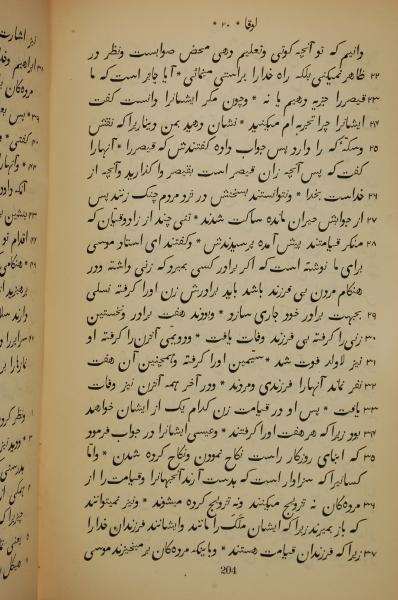 لوقا * ۲۰ *
وانیم که تو آنچه کوئی وتعلیم دهی محض صوابست ونظر در
۲۲ ظاهر نمیکنی بلکه راه خدا را براستی مینمائی * آیا جایز است که ما
۲۳ قیصررا جزیه دهیم یا نه * وچون مکر ایشانرا دانست کفت
۲۴ ایشانرا چرا تجربه ام میکنید * نشان دهید بمن دیناریرا که نقش
۲۵ وسکهٔ که را دارد پس جواب داده کفتندش که قیصررا * آنهارا
کفت که پس آنچه زان قیصر است بقیصر واکذارید وآنچه از
۲۶ خداست بخدا * ونتوانستند بسخنش در نزد مردم چنک زنند پس
۲۷ از جوابش حیران مانده ساکت شدند * تنی چند از زادوقیان که
۲۸ منکر قیامتند پیش آمده پرسیدندش * وکفتند ای استاد موسی
برای ما نوشته است که اکر برادر کسی بمیرد که زنی داشته ودر
هنکام مردن بی فرزند باشد باید برادرش زن اورا کرفته نسلی
۲۹ بجهت برادر خود جاری سازد * وبودند هفت برادر ونخستین
۳۰ زنی را کرفته بی فرزند وفات یافت * ودویمی آنزن را کرفته او
۳۱ نیز لاولد فوت شد * سیمین اورا کرفته وهمچنین آن هفت
۳۲ نفر نماند آنهارا فرزندی ومردند * ودر آخر همه آنزن نیز وفات
۳۳ یافت * پس او در قیامت زن کدام یک از ایشان خواهد
۳۴ بود زیرا که هر هفت اورا کرفتند * وعیسی ایشانرا در جواب فرمود
۳۵ که ابنای روزکار راست نکاح نمودن ونکاح کرده شدن * وامّا
کسانیرا که سزاوار است که بدست آرند آنجهانرا وقیامت را از
۳۶ مردهکان نه ترویج میکنند ونه ترویج کرده میشوند * ونیز نمیتوانند
که باز بمیرند زیرا که ایشان ملک را مانند وایشانند فرزندان خدارا
۳۷ زیرا که فرزندان قیامت هستند * وباینکه مردهکان بر میخیزند موسی
204